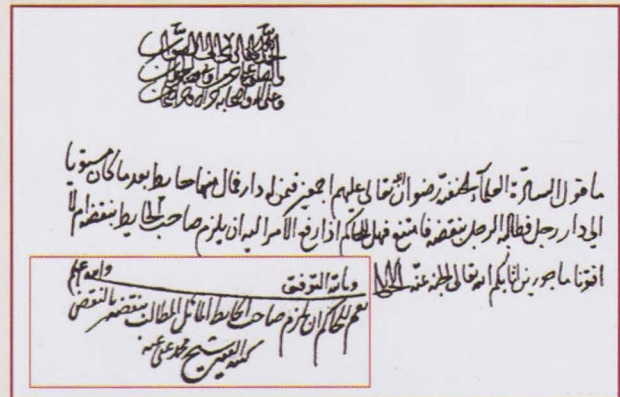 الحمد لله الهادي إلى الصواب
وعلى آله وأصحابه
ما قول السادة العلماء الحنفية رضوان الله تعالى عليهم اجمعين فيمن له دار فمال منها حايط بعد ما كان مستويا
الي دار رجل فطالبه الرجل بنقضه فامتنع فهل للحاكم اذا رفع الأمر اليه ان يلزم صاحب الحايط بنقضه ام لا
افتونا ماجورين اثابكم الله تعالى الجنة بمنه
وبالله التوفيق
والله اعلم
نعم للحاكم ان يلزم صاحب الحايط المائل المطالب بنقضه بالنقض
كتبه الفقير الشيخ محمد عفي عنه